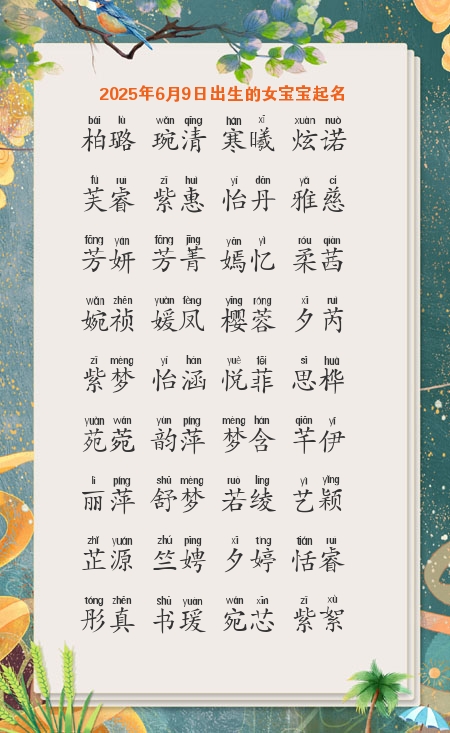 2025年6月9日出生的女宝宝起名
bái lù wǎn qīng hán xī xuàn nuò
柏璐 琬清 寒曦 炫诺
fú ruì zǐ huì yí dān yǎ cí
芙睿 紫惠 怡丹 雅慈
fāng yán fāng jīng yān yì róu qiàn
芳妍 芳菁 嫣忆 柔茜
wǎn zhēn yuàn fèng yīng róng xī ruì
婉祯 媛凤 樱蓉 夕芮
zǐ mèng yí hán yuè fēi sī huà
紫梦 怡涵 悦菲 思桦
yuàn wǎn yùn píng mèng hán qiān yī
苑菀 韵萍 梦含 芊伊
lì píng shū mèng ruò líng yì yǐng
丽萍 舒梦 若绫 艺颖
zhǐ yuán zhú pīng xī tíng tián ruì
芷源 竺娉 夕婷 恬睿
tóng zhēn shū yuàn wǎn xīn zǐ xù
彤真 书瑗 宛芯 紫絮